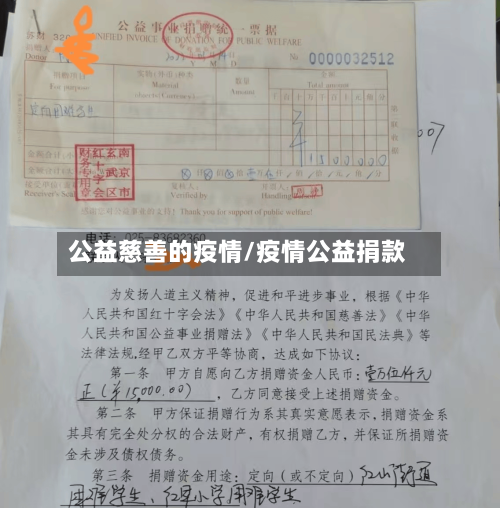 公益事业捐赠统一票据
UNIFIED INVOICE OF DONATION FOR PUBLIC WELFARE
№ 0000032512
捐赠项目
For purpose
实物(外币)种类
Material
(Currency)
数量
Amount
金额
Total amount
千 百 十 万 千 百 十 元 角 分
1500000
南京市玄武区红十字会财务专用章
复核人:
Verified by
开票人:
Handling
感谢您对公益事业的支持! Thank you for support of public welfare!
公益慈善的疫情/疫情公益捐款
为发扬人道主义精神，促进和平进步事业，根据《中华
人民共和国红十字会法》《中华人民共和国慈善法》《中华
人民共和国公益事业捐赠法》《中华人民共和国民法典》等
法律法规,经甲乙双方平等协商，达成如下协议：
第一条 甲方自愿向乙方捐赠资金人民币：壹万伍仟元
正(￥15,000.00)，乙方同意接受上述捐赠资金。
第二条 甲方保证捐赠行为系其真实意愿表示，捐赠资金系
其具有完全处分权的合法财产，有权捐赠乙方，并保证所捐赠资
金未涉及债权债务。
第三条 捐赠资金用途：定向（或不定向）红山街道
困难学生、红军小学困难学生